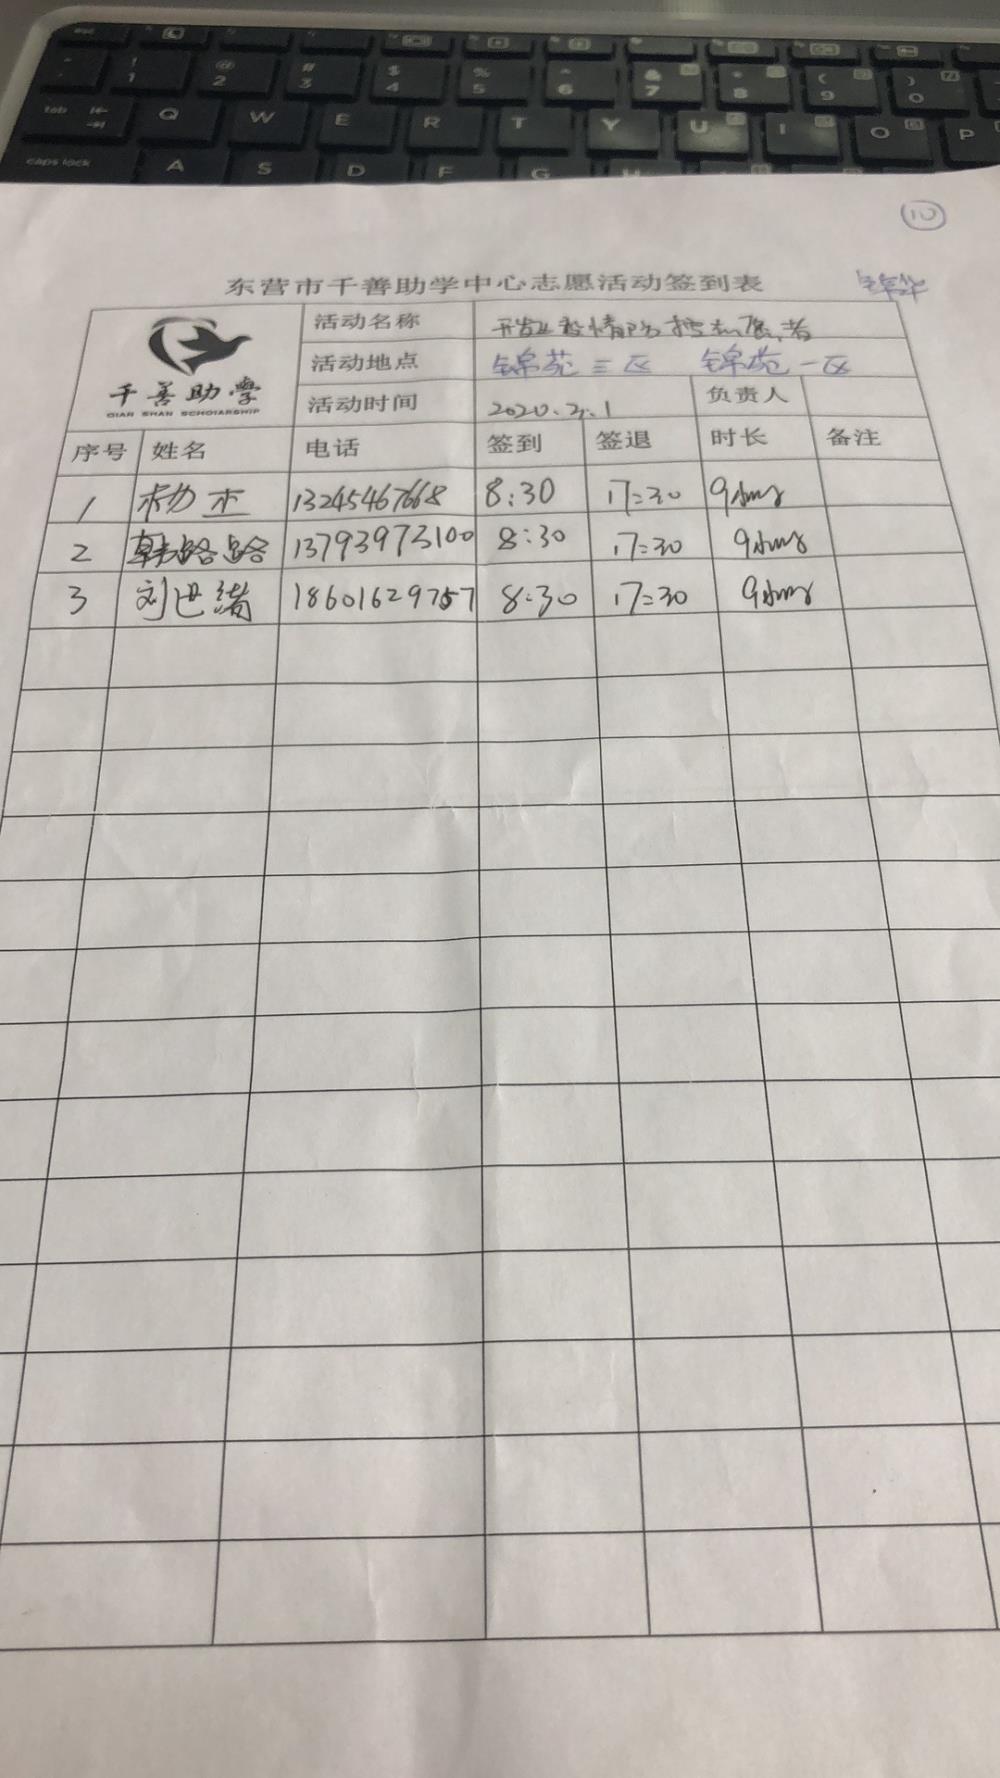 esc
! 1 @ 2 # 3 $ 4 % 5 ^ 6 & 7 * 8 ( 9 ) 0
tab Q W E R T Y U I O P
caps lock A S D F G H
10
东营市千善助学中心志愿活动签到表 锦华
千善助学
QIAN SHAN SCHOLARSHIP
活动名称 开发区疫情防控志愿者
活动地点 锦苑三区 锦苑一区
活动时间 2020.2.1 负责人
序号 姓名 电话 签到 签退 时长 备注
1 杨杰 13245467668 8:30 17:30 9
2 韩路路 13793973100 8:30 17:30 9
3 刘世绪 18601629757 8:30 17:30 9